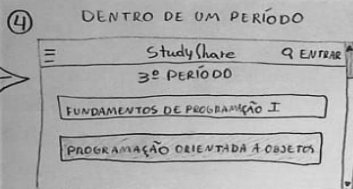 4 DENTRO DE UM PERÍODO
StudyShare ENTRAR
3º PERÍODO
FUNDAMENTOS DE PROGRAMAÇÃO I
PROGRAMAÇÃO ORIENTADA A OBJETOS